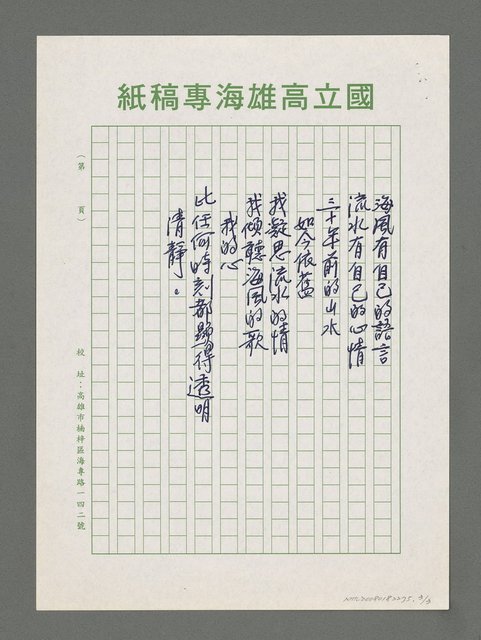 國立高雄海專稿紙
海風有自己的語言
流水有自己的心情
三十年前的山水
如今依舊
我凝思流水的情
我傾聽海風的歌
我的心
比任何時刻都顯得透明
清靜。
(第 頁)
校址：高雄市楠梓區海專路一四二號
NMTL20080182275. 3/3